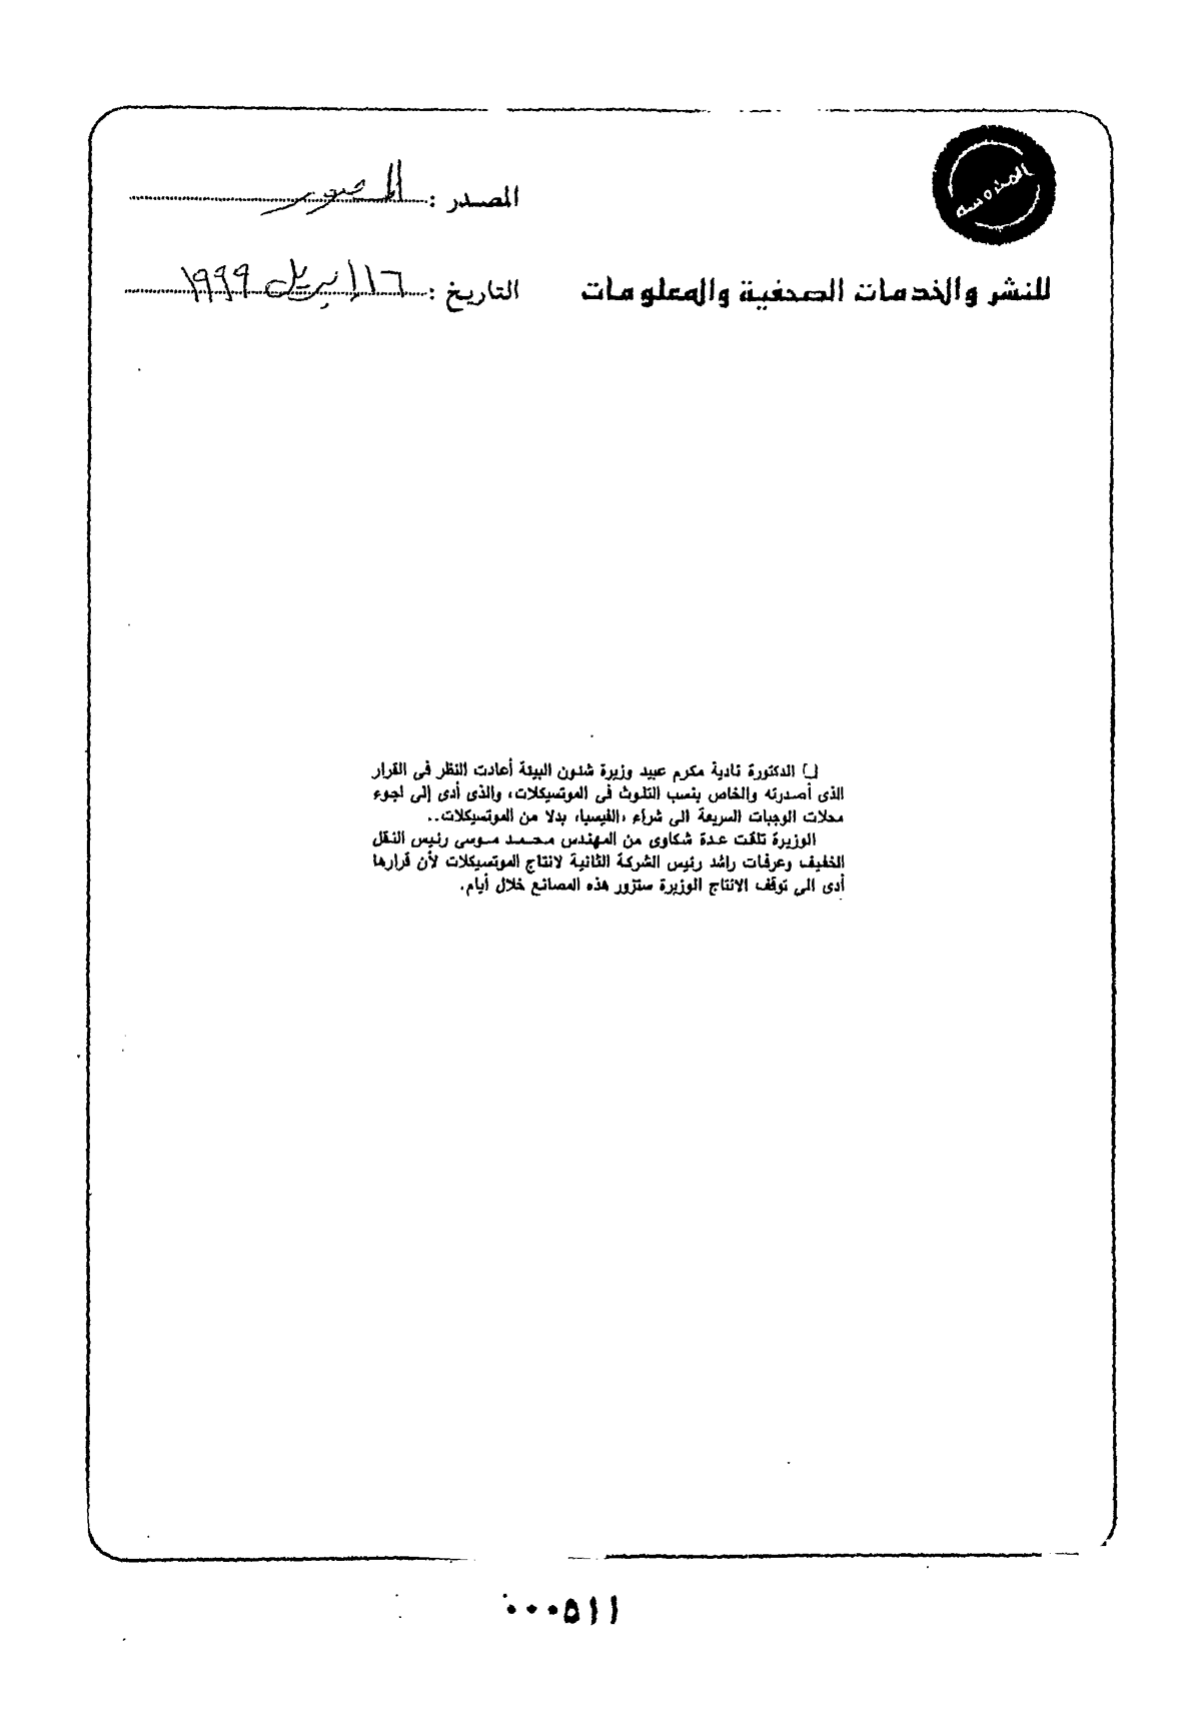 المصدر : المصور
للنشر والخدمات الصحفية والمعلومات
التاريخ : ١٦ ابريل ١٩٩٩
الدكتورة نادية مكرم عبيد وزيرة شئون البيئة أعادت النظر فى القرار
الذى أصدرته والخاص بنسب التلوث فى الموتسيكلات، والذى أدى إلى لجوء
محلات الوجبات السريعة الى شراء «الفيسبا» بدلا من الموتسيكلات..
الوزيرة تلقت عدة شكاوى من المهندس محمد موسى رئيس النقل
الخفيف وعرفات راشد رئيس الشركة الثانية لانتاج الموتسيكلات لأن قرارها
أدى الى توقف الانتاج الوزيرة ستزور هذه المصانع خلال أيام.
٠٠٠٥١١